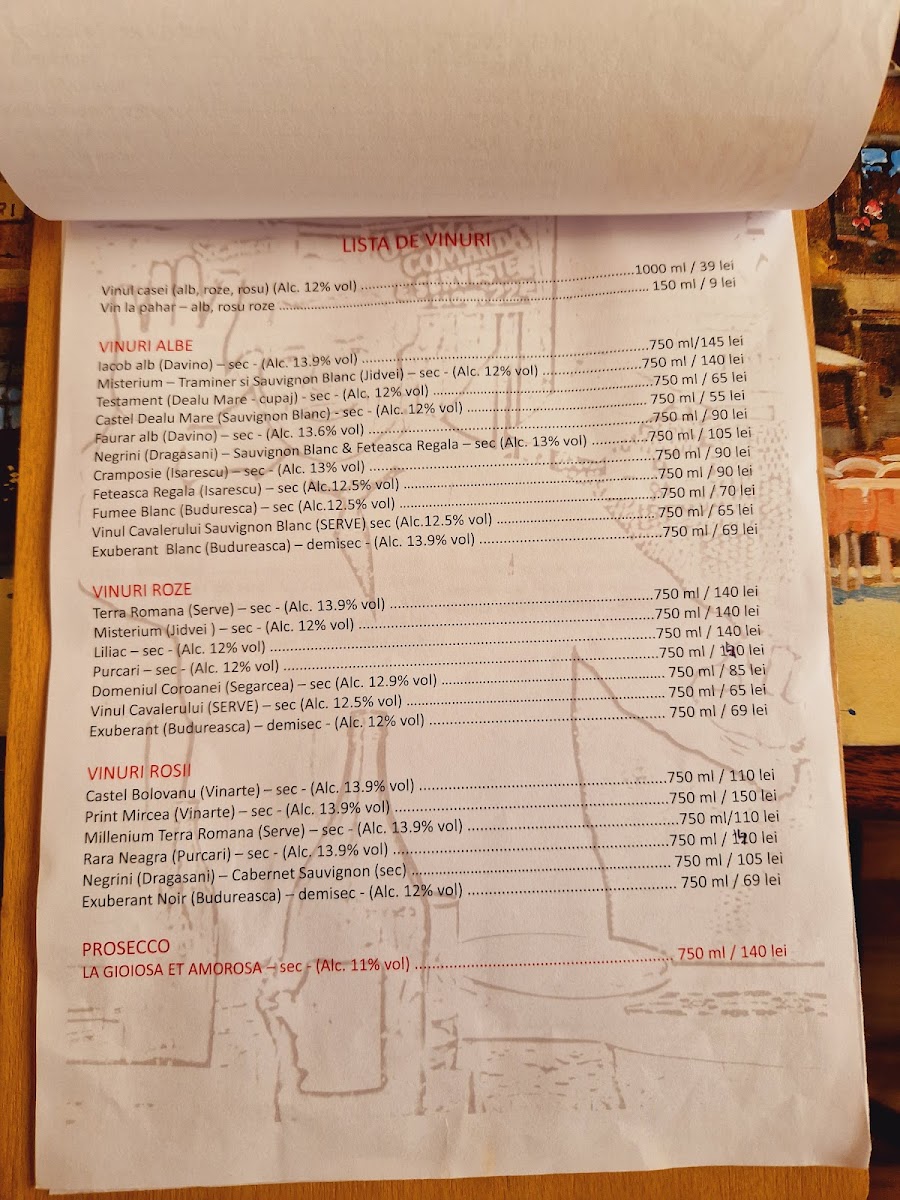 LISTA DE VINURI
Vinul casei (alb, roze, rosu) (Alc. 12% vol) ........ 1000 ml / 39 lei
Vin la pahar – alb, rosu roze ........ 150 ml / 9 lei
VINURI ALBE
Iacob alb (Davino) – sec - (Alc. 13.9% vol) ........ 750 ml/145 lei
Misterium – Traminer si Sauvignon Blanc (Jidvei) – sec - (Alc. 12% vol) ........ 750 ml / 140 lei
Testament (Dealu Mare - cupaj) - sec - (Alc. 12% vol) ........ 750 ml / 65 lei
Castel Dealu Mare (Sauvignon Blanc) - sec - (Alc. 12% vol) ........ 750 ml / 55 lei
Faurar alb (Davino) – sec - (Alc. 13.6% vol) ........ 750 ml / 90 lei
Negrini (Dragasani) – Sauvignon Blanc & Feteasca Regala – sec (Alc. 13% vol) ........ 750 ml / 105 lei
Cramposie (Isarescu) – sec - (Alc. 13% vol) ........ 750 ml / 90 lei
Feteasca Regala (Isarescu) – sec (Alc.12.5% vol) ........ 750 ml / 90 lei
Fumee Blanc (Buduresca) – sec (Alc.12.5% vol) ........ 750 ml / 70 lei
Vinul Cavalerului Sauvignon Blanc (SERVE) sec (Alc.12.5% vol) ........ 750 ml / 65 lei
Exuberant Blanc (Budureasca) – demisec - (Alc. 13.9% vol) ........ 750 ml / 69 lei
VINURI ROZE
Terra Romana (Serve) – sec - (Alc. 13.9% vol) ........ 750 ml / 140 lei
Misterium (Jidvei ) – sec - (Alc. 12% vol) ........ 750 ml / 140 lei
Liliac – sec - (Alc. 12% vol) ........ 750 ml / 140 lei
Purcari – sec - (Alc. 12% vol) ........ 750 ml / lei
Domeniul Coroanei (Segarcea) – sec (Alc. 12.9% vol) ........ 750 ml / 85 lei
Vinul Cavalerului (SERVE) – sec (Alc. 12.5% vol) ........ 750 ml / 65 lei
Exuberant (Budureasca) – demisec - (Alc. 12% vol) ........ 750 ml / 69 lei
VINURI ROSII
Castel Bolovanu (Vinarte) – sec - (Alc. 13.9% vol) ........ 750 ml / 110 lei
Print Mircea (Vinarte) – sec - (Alc. 13.9% vol) ........ 750 ml / 150 lei
Millenium Terra Romana (Serve) – sec - (Alc. 13.9% vol) ........ 750 ml/110 lei
Rara Neagra (Purcari) – sec - (Alc. 13.9% vol) ........ 750 ml / lei
Negrini (Dragasani) – Cabernet Sauvignon (sec) ........ 750 ml / 105 lei
Exuberant Noir (Budureasca) – demisec - (Alc. 12% vol) ........ 750 ml / 69 lei
PROSECCO
LA GIOIOSA ET AMOROSA – sec - (Alc. 11% vol) ........ 750 ml / 140 lei